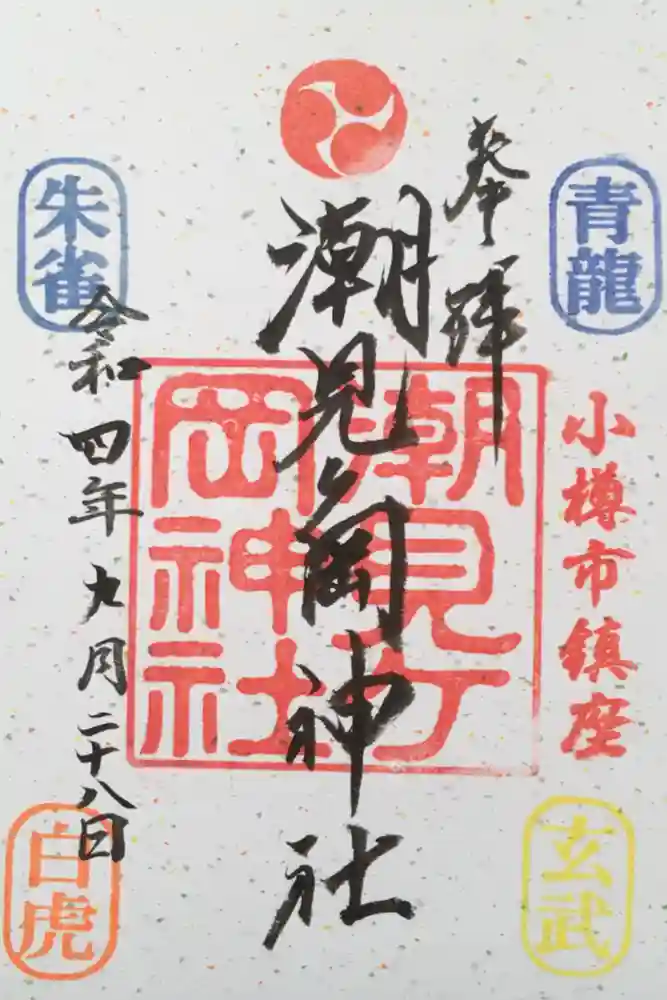 青龍
奉拝
小樽市鎮座
潮見ヶ岡神社
潮見ケ
岡神社
朱雀
令和四年九月二十八日
玄武
白虎